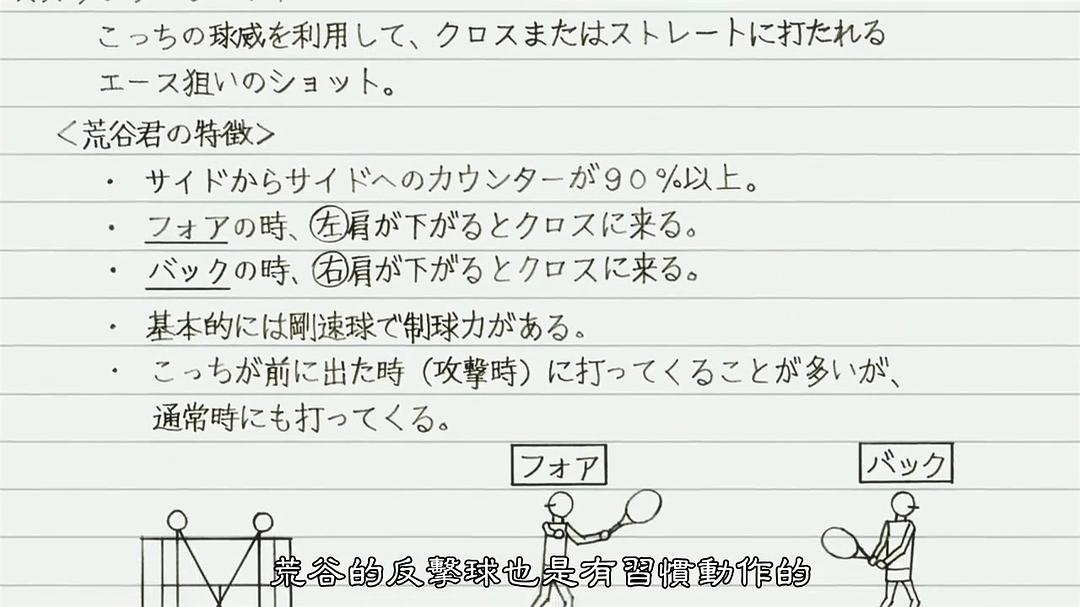 こっちの球威を利用して、クロスまたはストレートに打たれる
エース狙いのショット。
＜荒谷君の特徴＞
・ サイドからサイドへのカウンターが９０％以上。
・ フォアの時、㊧肩が下がるとクロスに来る。
・ バックの時、㊨肩が下がるとクロスに来る。
・ 基本的には剛速球で制球力がある。
・ こっちが前に出た時（攻撃時）に打ってくることが多いが、
通常時にも打ってくる。
フォア
バック
荒谷的反擊球也是有習慣動作的